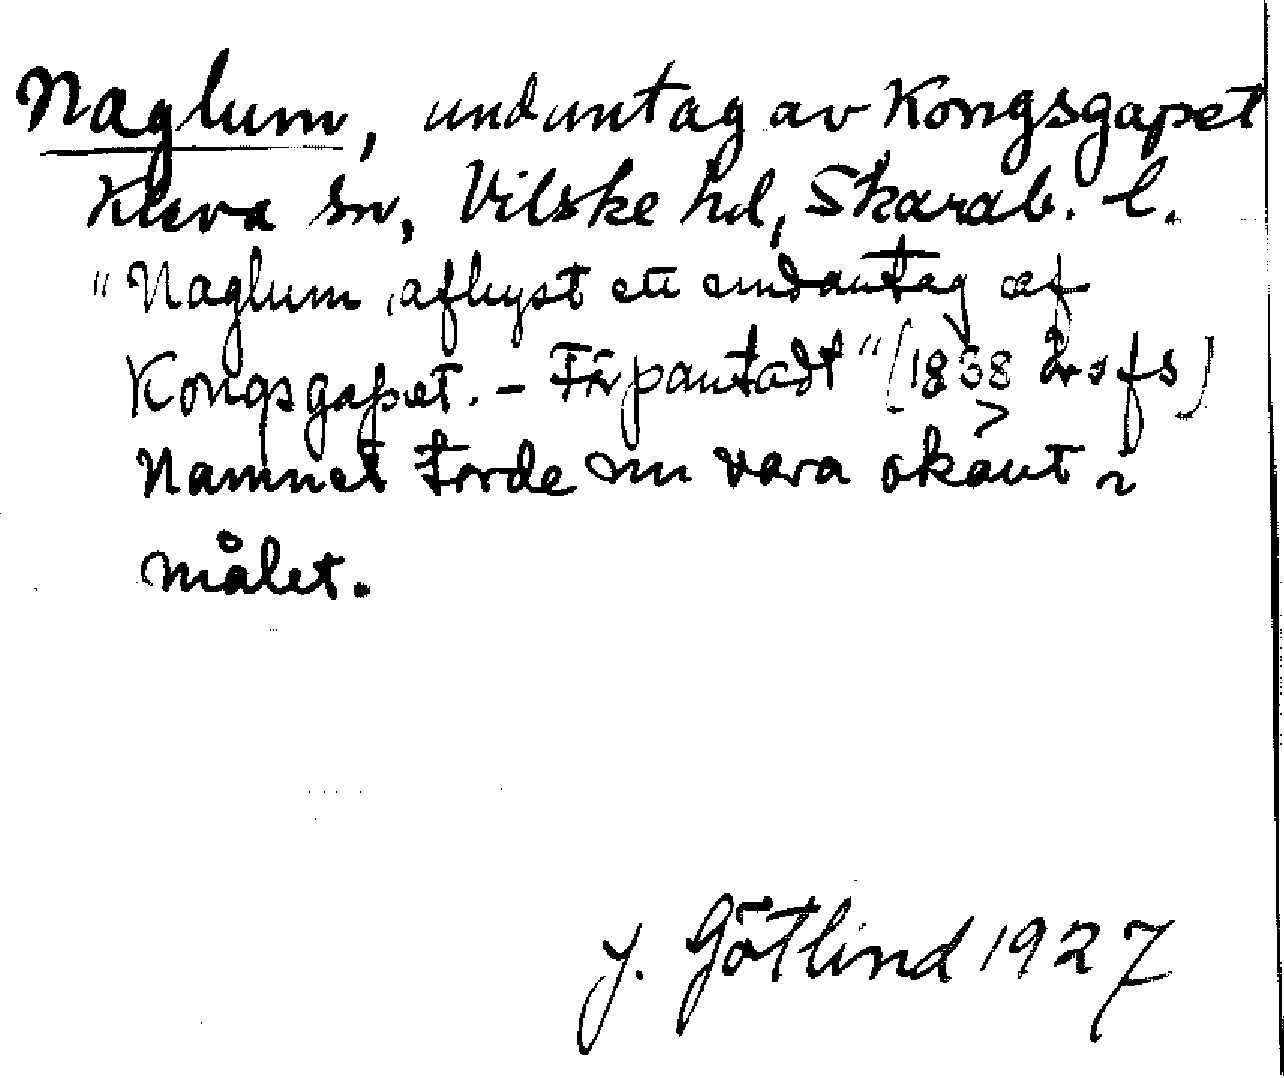 Naglum, undantag av Kongsgapet
Kleva sn, Vilske hd, Skarab. l.
"Naglum, aflyst ett undantag af
Kongsgapet. - Förpantadt" (1858 års fs)
Namnet torde nu vara okänt i
målet.
J. Götlind 1927